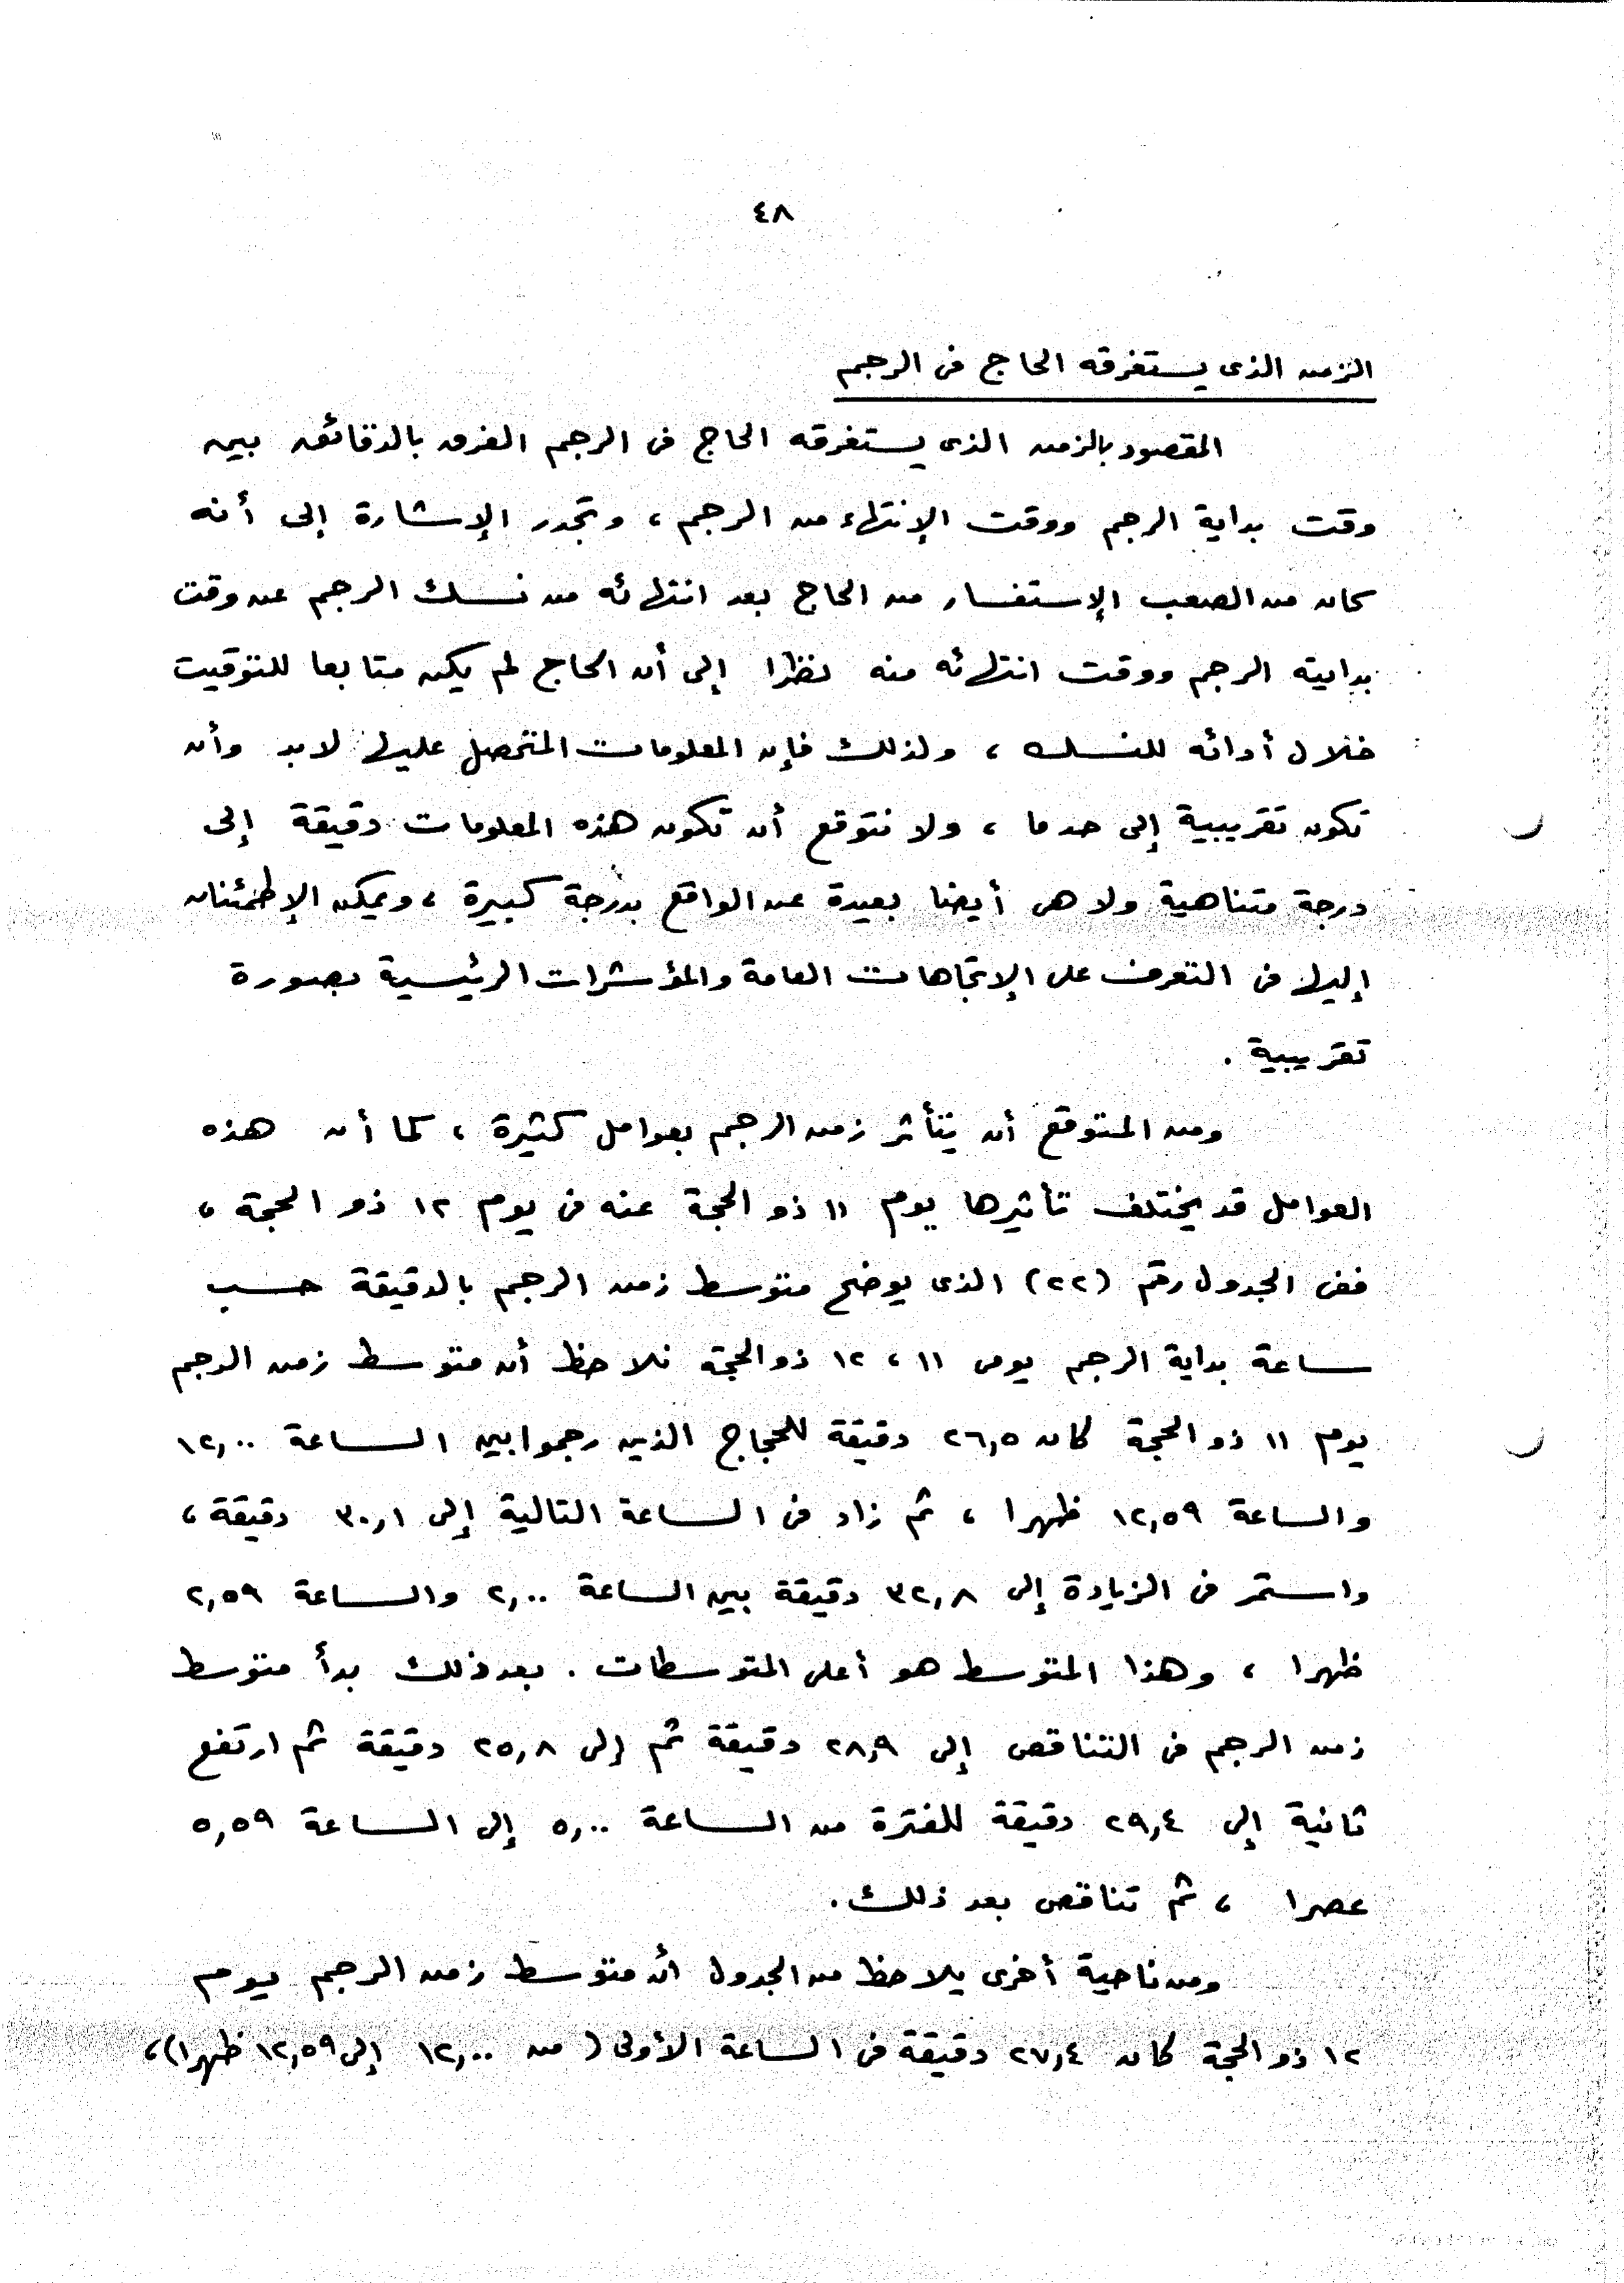 ٤٨
الزمن الذى يستغرقه الحاج فى الرجم
المقصود بالزمن الذى يستغرقه الحاج فى الرجم الفرق بالدقائق بين
وقت بداية الرجم ووقت الإنتهاء من الرجم ، وتجدر الإشارة إلى أنه
كان من الصعب الإستفسار من الحاج بعد انتهائه من نسك الرجم عن وقت
بدايته الرجم ووقت انتهائه منه نظرا إلى أن الحاج لم يكن متابعا للتوقيت
خلال أدائه للنسك ، ولذلك فإن المعلومات المتحصل عليها لابد وأن
تكون تقريبية إلى حد ما ، ولا نتوقع أن تكون هذه المعلومات دقيقة إلى
درجة متناهية ولا هى أيضا بعيدة عن الواقع بدرجة كبيرة ، ويمكن الإطمئنان
إليها فى التعرف على الإتجاهات العامة والمؤشرات الرئيسية بصورة
تقريبية .
ومن المتوقع أن يتأثر زمن الرجم بعوامل كثيرة ، كما أن هذه
العوامل قد يختلف تأثيرها يوم ١١ ذو الحجة عنه فى يوم ١٢ ذو الحجة ،
ففى الجدول رقم (٢٢) الذى يوضح متوسط زمن الرجم بالدقيقة حسب
ساعة بداية الرجم يومى ١١ ، ١٢ ذو الحجة نلاحظ أن متوسط زمن الرجم
يوم ١١ ذو الحجة كان ٢٦,٥ دقيقة للحجاج الذين رجموا بين الساعة ١٢,٠٠
والساعة ١٢,٥٩ ظهرا ، ثم زاد فى الساعة التالية إلى ٣٠,١ دقيقة ،
واستمر فى الزيادة إلى ٣٢,٨ دقيقة بين الساعة ٢,٠٠ والساعة ٢,٥٩
ظهرا ، وهذا المتوسط هو أعلى المتوسطات . بعد ذلك بدأ متوسط
زمن الرجم فى التناقص إلى ٢٨,٩ دقيقة ثم إلى ٢٥,٨ دقيقة ثم ارتفع
ثانية إلى ٢٩,٤ دقيقة للفترة من الساعة ٥,٠٠ إلى الساعة ٥,٥٩
عصرا ، ثم تناقص بعد ذلك .
ومن ناحية أخرى يلاحظ من الجدول أن متوسط زمن الرجم يوم
١٢ ذو الحجة كان ٢٧,٤ دقيقة فى الساعة الأولى ( من ١٢,٠٠ إلى ١٢,٥٩ ظهرا) ،